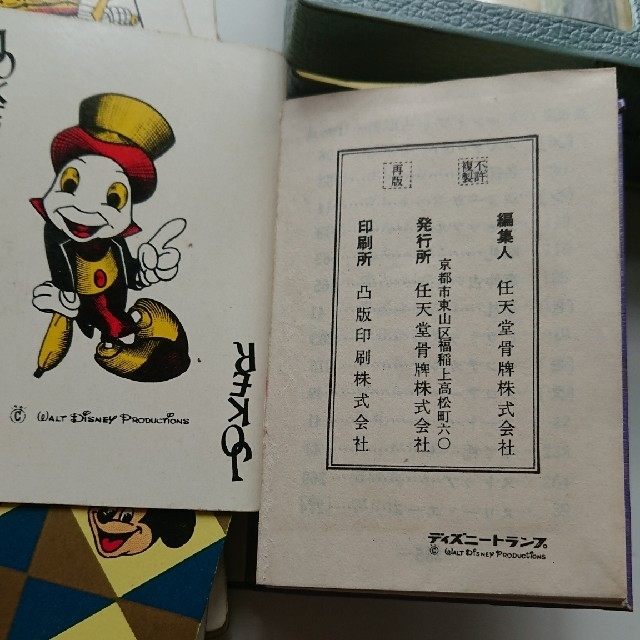 不許
複製
再版
編集人　任天堂骨牌株式会社
京都市東山区福稲上高松町六〇
発行所　任天堂骨牌株式会社
印刷所　凸版印刷株式会社
ディズニートランプ。
© WALT DISNEY PRODUCTIONS
© WALT DISNEY PRODUCTIONS